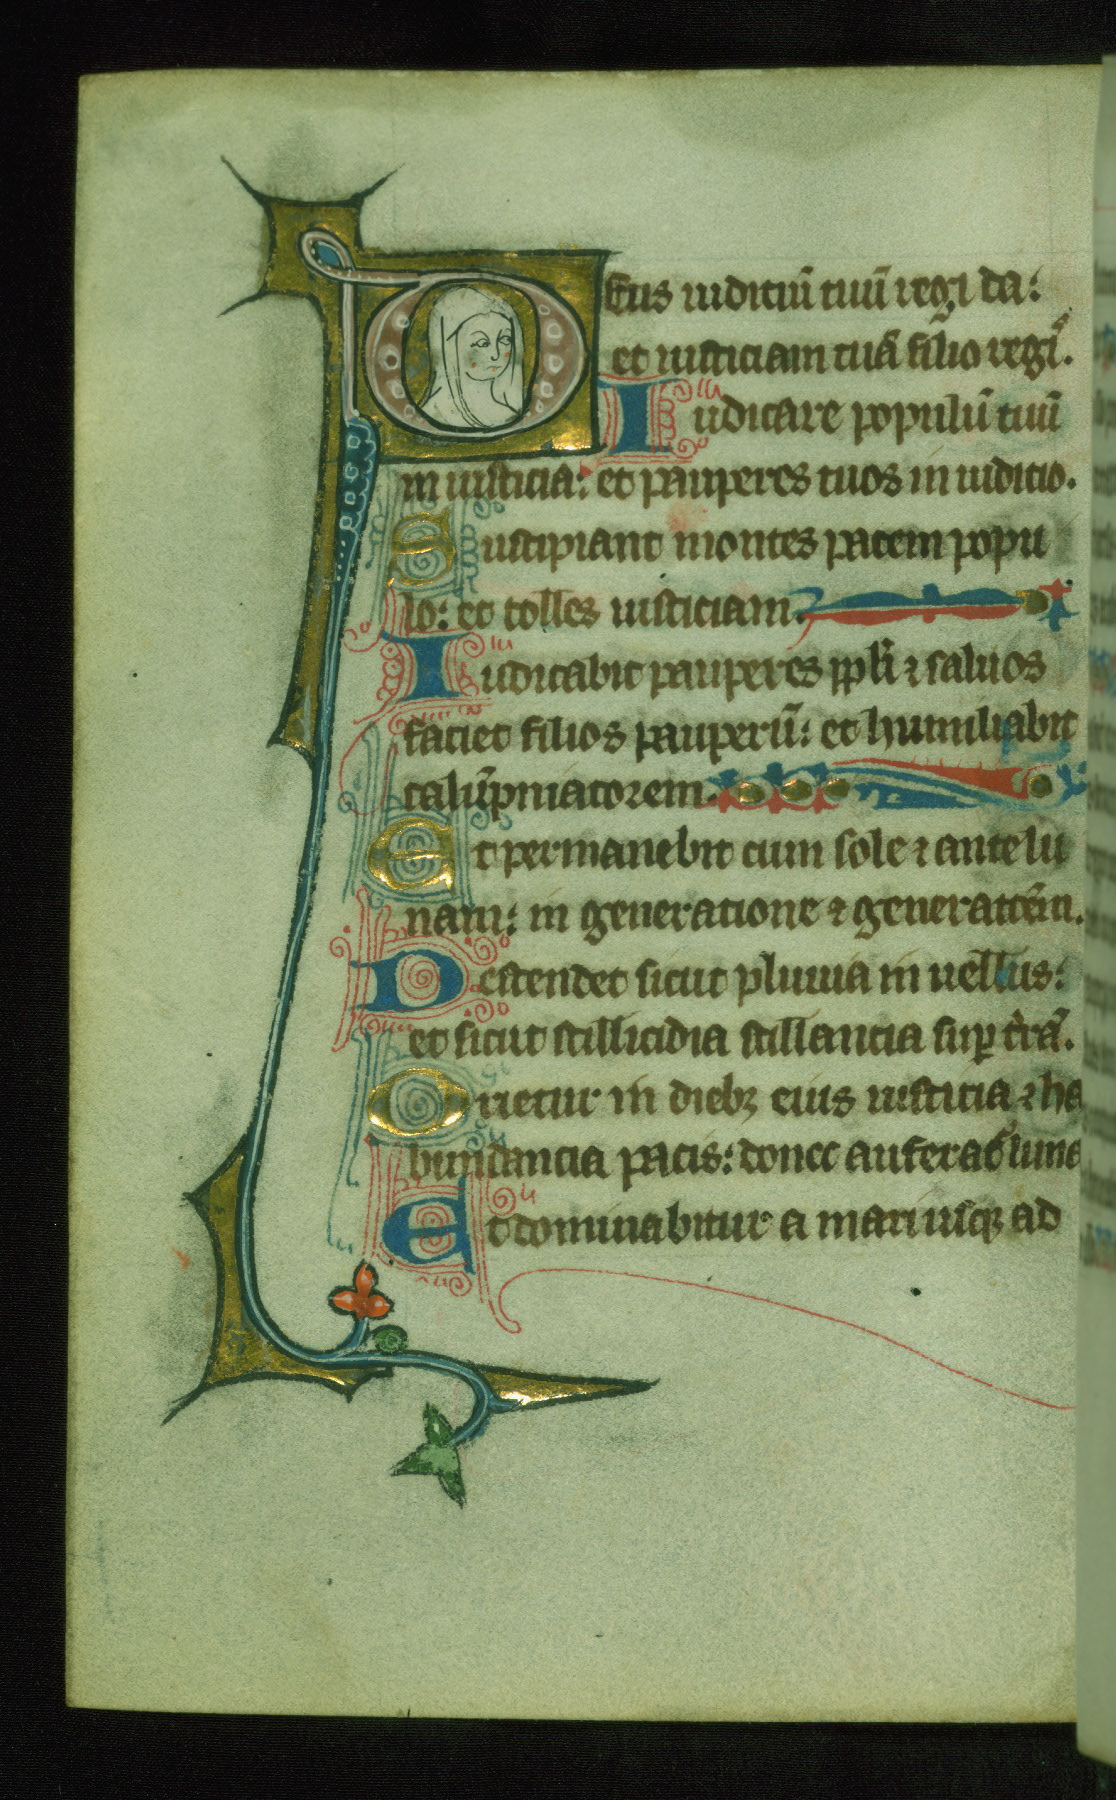 Deus iudiciū tuū regi da:
et iusticiam tuā filio regiˢ.
Iudicare populū tuū
in iusticia: et pauperes tuos in iudicio.
Suscipiant montes pacem popu
lo: et colles iusticiam.
Iudicabit pauperes ppl̄i ⁊ saluos
faciet filios pauperū: et humiliabit
calūpniatorem.
Et permanebit cum sole ⁊ ante lu
nam: in generatione ⁊ generatōem.
Descendet sicut pluuia in uellus:
et sicut stillicidia stillancia suꝑ t̄rā.
Orietur in diebꝫ eius iusticia ⁊ ha
bundancia pacis: donec auferat᷑ luna
Et dominabitur a mari usqꝫ ad